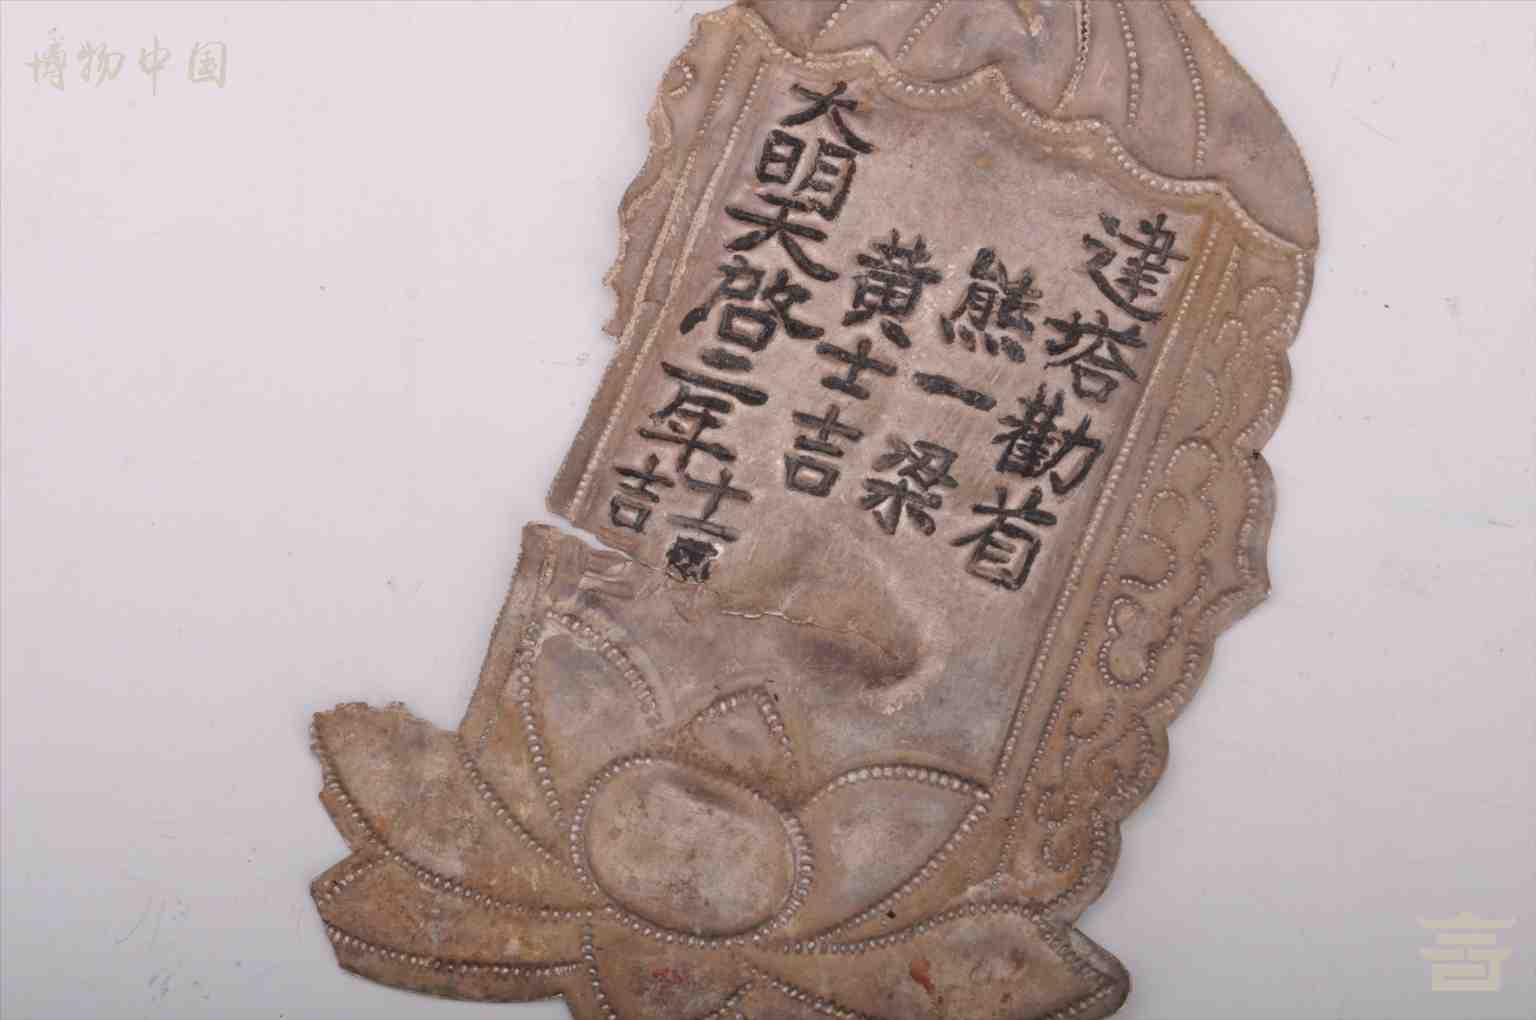 博物中国
建塔勸首
熊一梁
黄士吉
大明天啓三年十二
吉